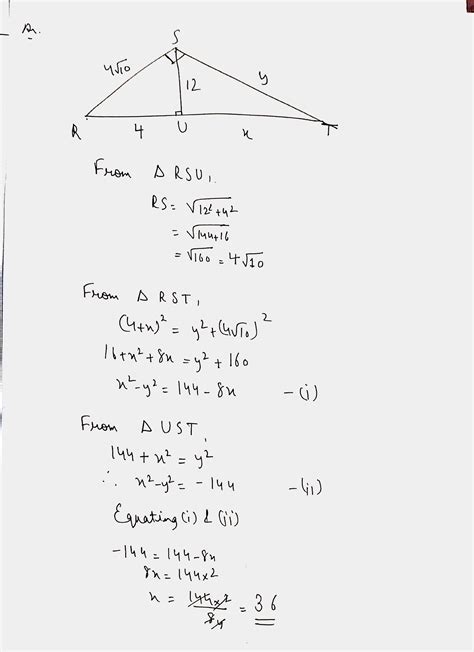 S
4√10
12
y
R
4
U
x
T
From △ RSU,
RS = √12²+4²
= √144+16
= √160 = 4√10
From △ RST,
(4+x)² = y²+(4√10)²
16+x²+8x = y²+160
x²-y² = 144-8x -(i)
From △ UST,
144+x² = y²
∴ x²-y² = -144 -(ii)
Equating (i) & (ii)
-144 = 144-8x
8x = 144×2
x = 144×2/8 = 36